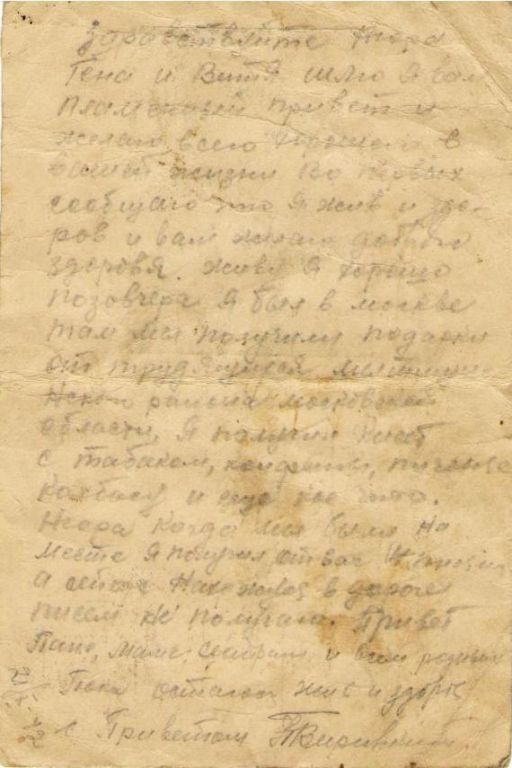 Здравствуйте Нюра
Гена и Витя шлю я вам
пламенный привет и
желаю всего хорошего в
вашей жизни Во первых
сообщаю что я жив и здо-
ров и вам желаю доброго
здоровя. живу я хорошо
позовчера я был в москве
там мы получили подарки
от трудящихся
района московской
области, я получил кисет
с табаком, конфеты, печенье
колбасу и еще кое что.
Нюра когда мы были на
месте я получил от вас
а сейчас нахожись в дороге
писем не получаю. Привет
Папе, маме, сестрам и всем родным
Пока остаюсь жив и здоров
с Приветом